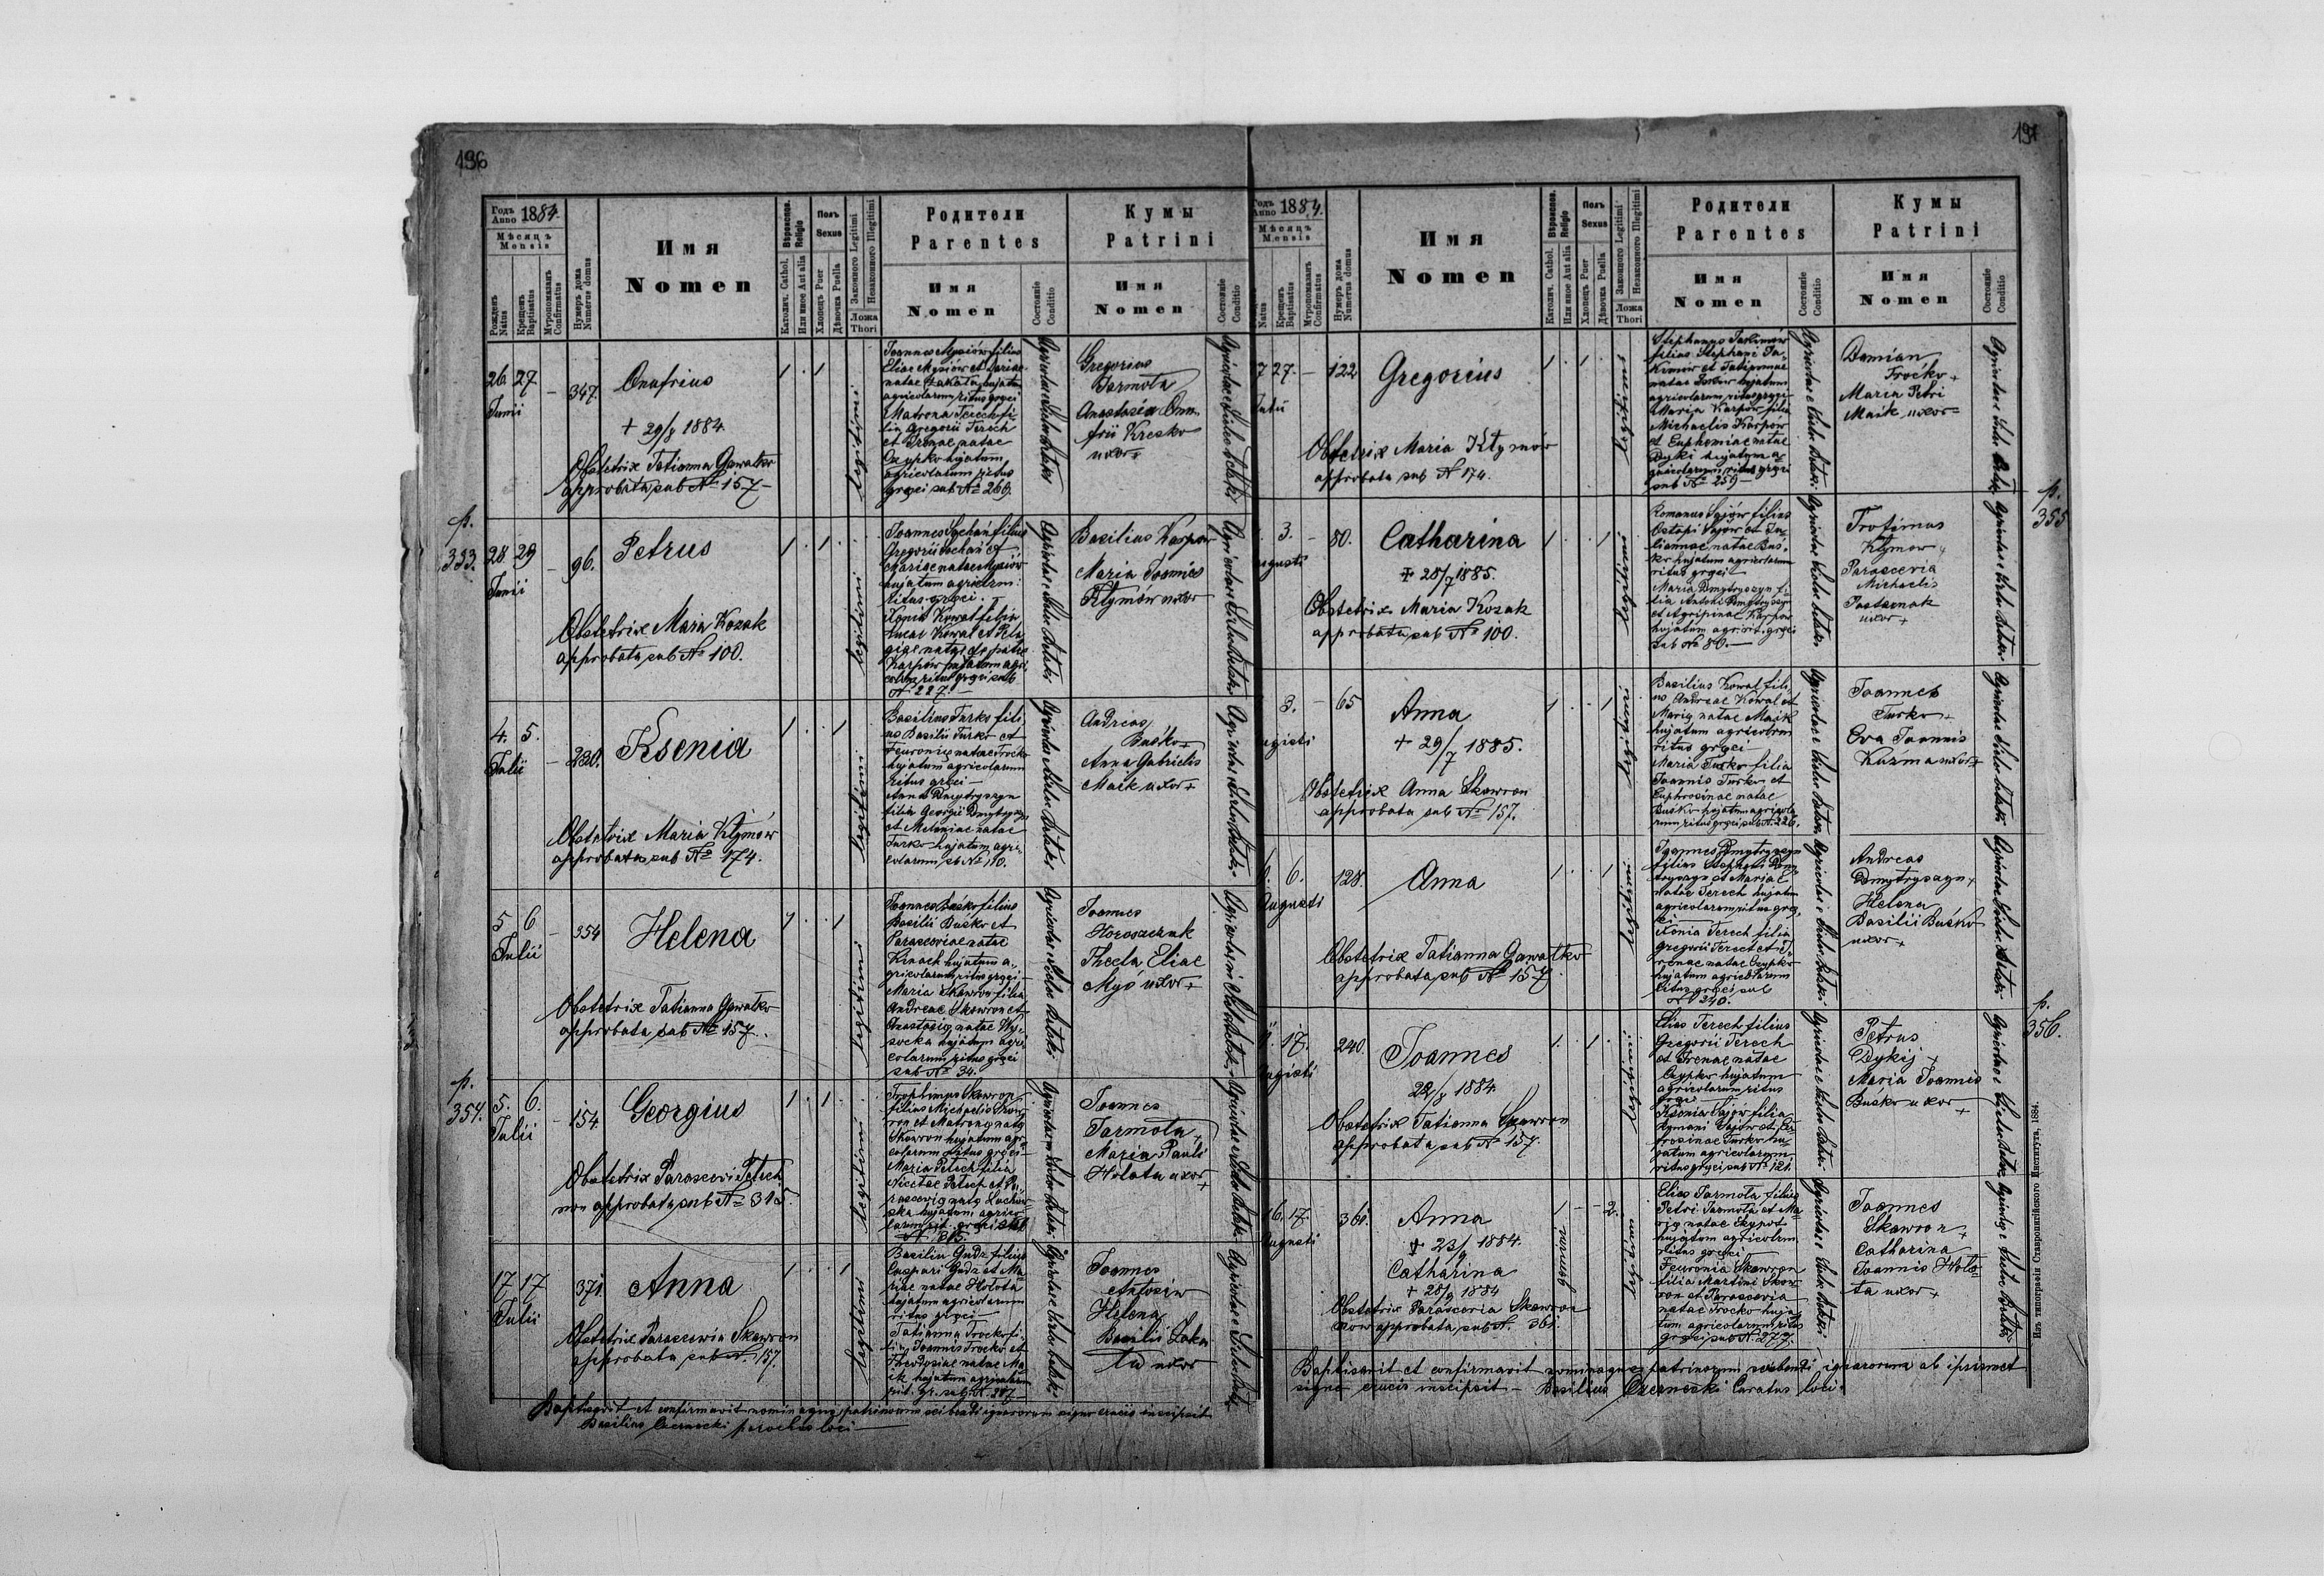 196
Годъ Anno 1884.
Мѣсяцъ
Mensis
Рожденъ Natus
Крещенъ Baptisatus
Мѵропомазанъ Confirmatus
Нумеръ дома Numerus domus
Имя
Nomen
Вѣроиспов. Religio
Католич. Cathol.
Или иное Aut alia
Полъ Sexus
Хлопецъ Puer
Дѣвочка Puella
Законного Legitimi
Незаконного Illegitimi
Ложа Thori
Родители
Parentes
Имя
Nomen
Состояніе Conditio
Кумы
Patrini
Имя
Nomen
Состояніе Conditio
26 27 – 347.
Junii
Onufrius
+ 29/8 1884.
Obstetrix Tatianna Gawatko
approbata sub № 157 –
1 · 1
legitimi
Joannes Mysiów filius
Eliae Mysiów et Dariae
natae hujatum
agricolarum ritus graeci
Matrona Terech fi-
lia Gregorii Terech
et Irenae natae
Czypko hujatum
agricolarum ritus
graeci sub № 266.
Gregorius
Jarmota
Anastasia Onu-
frii Kresko
uxor
p.
353.
28 29 – 96.
Junii
Petrus
Obstetrix Maria Kozak
approbata sub № 100.
1 · 1
legitimi
Joannes Sychań filius
Gregorii Sochań et
Mariae natae Mysiów
hujatum agricolrm:
ritus graeci. –
Xenia Kowal filia
Lucae Kowal et Pela
giae natae de patre
Karpów hujatum agri
colrm ritus graeci sub
№ 227. –
Basilius Karpów
Maria Joannis
Klymów uxor
4. 5. – 230.
Julii
Ksenia
Obstetrix Maria Klymów
approbata sub № 174.
1 · · 1
legitimi
Basilius Turko fili-
us Basilii Turko et
Feuroniae natae Troćko
hujatum agricolarum
ritus graeci –
Anna Dmytryszyn
filia Georgii Dmytryszyn
et Melaniae natae
Turko hujatum agri-
colarum sub № 110.
Andreas
Buśko +
Anna Gabrielis
Maik uxor +
5 6 – 354
Julii
Helena
Obstetrix Tatianna Gawatko
approbata sub № 157.
1 · · 1
legitimi
Joannes Buśko filius
Basilii Buśko et
Parasceviae natae
Kinach hujatum a-
gricolarum ritus graeci –
Maria Skawron filia
Andreae Skawron et
Anastasiae natae Wy-
socka hujatum agri-
colarum ritus graeci
sub № 34.
Joannes
Horoszczuk
Thecla Eliae
Myś uxor +
p.
354.
5. 6. – 154
Julii
Georgius
Obstetrix Parascevi Petech
non approbata sub № 315.
1 · 1
legitimi
Trophimus Skawron
filius Michaelis Skaw-
ron et Matronae natae
Skawron hujatum agri-
colarum ritus graeci –
Maria Petech filia
Nicetae Petech et Pa-
rasceviae natae
hujatum agrico-
larum rit. graeci sub
№ 315.
Joannes
Jarmota +
Maria Pauli
Holota uxor +
17 17 371.
Julii
Anna
Obstetrix Parascevia Skawron
approbata sub №. 157.
1 · · 1
legitimi
Basiliu Gudz filius
Caspari Gudz et Ma-
riae natae Holota
hujatum agricolarum
ritus graeci –
Tatianna Troćko fi-
lia Joannis Troćko et
Theodosiae natae Ma-
ik hujatum agricolarum
rit. gr. sub №. 287 –
Joannes
Antosiw
Helena
Basilii
uxor
Baptisavit et confirmavit nominaque patrinorum scibendi ignarorum signo crucis inscipsit
Basilius Czernecki parochus loci –
197
Годъ Anno 1884.
Мѣсяцъ
Mensis
Natus
Крещенъ Baptisatus
Мѵропомазанъ Confirmatus
Нумеръ дома Numerus domus
Имя
Nomen
Вѣроиспов. Religio
Католич. Cathol.
Или иное Aut alia
Полъ Sexus
Хлопецъ Puer
Дѣвочка Puella
Законного Legitimi
Незаконного Illegitimi
Ложа Thori
Родители
Parentes
Имя
Nomen
Состояніе Conditio
Кумы
Patrini
Имя
Nomen
Состояніе Conditio
7 27. – 122
Julii
Gregorius
Obstetrix Maria Klymów
approbata sub № 174.
1 · 1 ·
legitimi
Stephanus
filius Stephani
et
natae hujatum
agricolarum ritus graeci –
Maria Karpów filia
Michaelis Karpów
et Euphemiae natae
Dyki hujatum a-
gricolarum ritus graeci
sub № 259 –
Damian
Troćko +
Maria Petri
Maik uxor
p.
355
3. – 80.
Augusti
Catharina
+ 28/7 1885.
Obstetrix Maria Kozak
approbata sub № 100.
1 · · 1
legitimi
Romanus Sajów filius
Ostapi Sajów et Ju-
liannae natae Bus-
ko hujatum agricolarum
ritus graeci –
Maria Dmytryszyn fi-
lia Antoni Dmytryszyn
et Agripinae Karpów
hujatum agr. rit. graeci
sub № 80. –
Trofimus
Klymow +
Parascevia
Michaelis
Pasternak
uxor +
3. – 65
Augusti
Anna
+ 29/7 1885.
Obstetrix Anna Skawron
approbata sub № 157.
1 · · 1
legitimi
Basilius Kowal fili-
us Andreae Kowal et
Mariae natae Maik
hujatum agricolrm
ritus graeci –
Maria Turko filia
Joannis Turko et
Euphrosinae natae
Buśko hujatum agricola
rum ritus graeci sub №. 226.
Joannes
Turko +
Eva Joannis
Kuzma uxor +
6. 6. 128.
Augusti
Anna
Obstetrix Tatianna Gawatko
approbata sub № 157.
1 · · 1
legitimi
Joannes Dmytryszyn
filius Stephani Dmy-
tryszyn et Mariae
natae Terech hujatum
agricolarum ritus grae-
ci
Xenia Terech filia
Gregorii Terech et I-
renae natae Czypko
hujatum agricolarum
ritus graeci sub
№ 240.
Andreas
Dmytryszyn +
Helena
Basilii Buśko
uxor +
p.
356.
17. 240.
Augusti
Joannes
22/8 1884.
Obstetrix Tatianna Skawron
approbata sub № 157.
1 · 1 ·
legitimi
Elias Terech filius
Gregorii Terech
et Irenae natae
Czypko hujatum
agricolarum ritus
graeci
Ksenia Sajów filia
Romani Sajów et Eu-
frosinae Turko hu-
jatum agricolarum
ritus graeci sub № 121.
Petrus
Dykij +
Maria Joannis
Buśko uxor +
16. 17. 361.
Augusti
Anna
+ 23/9 1884.
Catharina
+ 28/9 1884
Obstetrix Parascevia Skawron
non approbata sub №. 361.
1 – – 2.
gemini
legitimi
Elias Jarmota filius
Petri Jarmota et Ma-
riae natae
hujatum agricolrm
ritus graeci
Feuronia Skawron
filia Martini Skaw-
ron et Parascevia
natae Troćko huja-
tum agricolarum ritus
graeci sub №. 277.
Joannes
Skawron +
Catharina
Joannis Holo-
ta uxor +
Baptisavit et confirmavit nominaque patrinorum scribendi ignarorum ab ipsismet
signo crucis inscipsit – Basilius Czernecki Curatus loci.
Изъ типографіи Ставропигійского Института, 1884.